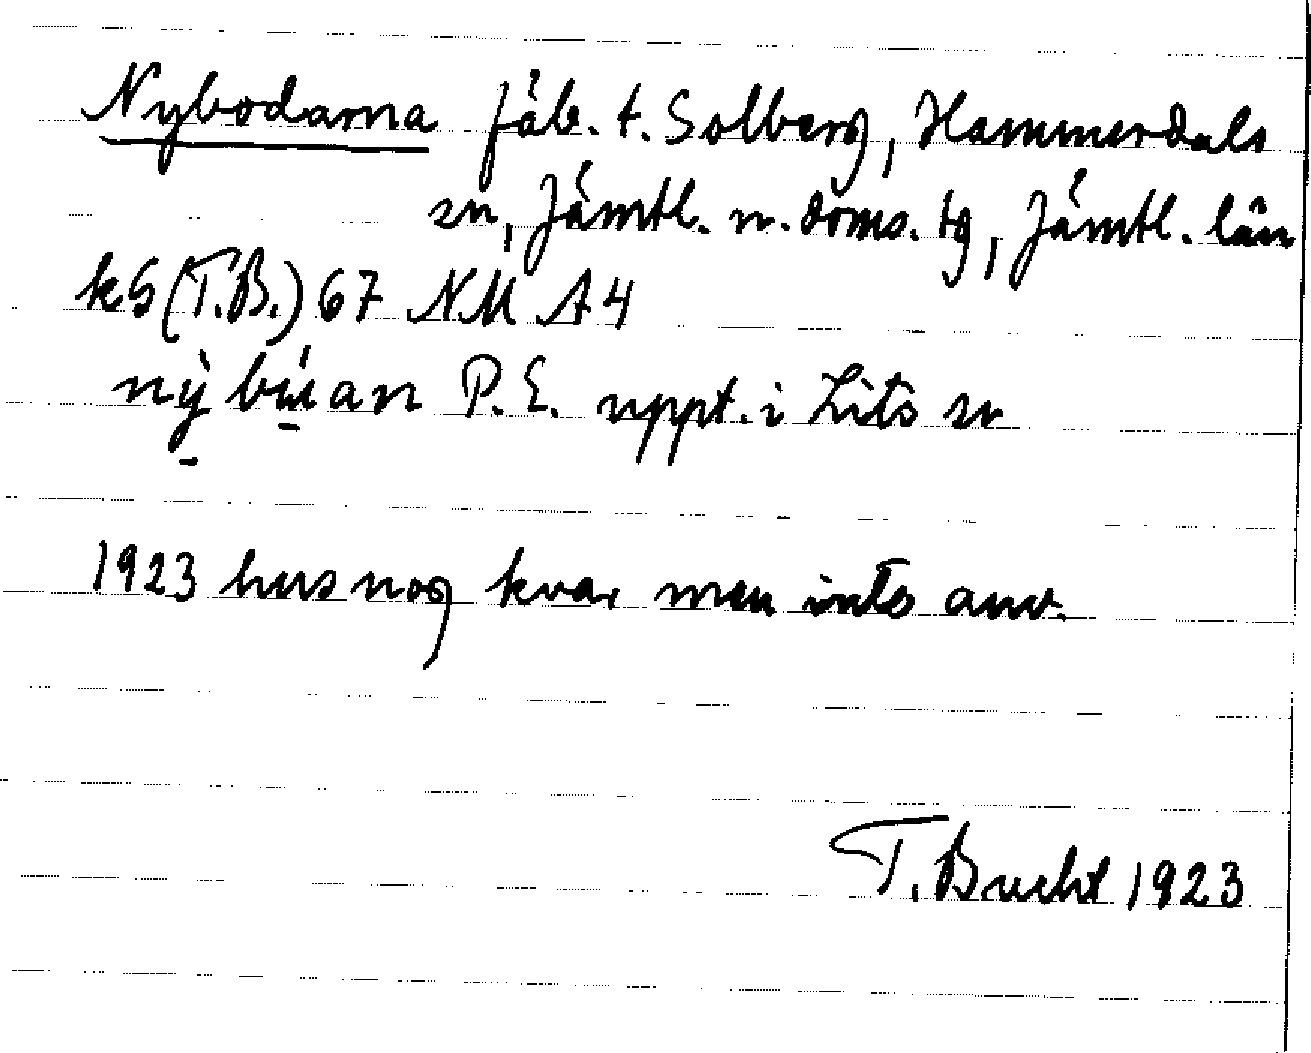 Nybodarna fäb. t. Solberg, Hammerdals
sn, Jämtl. n. doms. tg, Jämtl. län
kS (T.B.) 67 NM A4
nỳ bu̠an P.E. uppt. i Lits sn
1923 hus nog kvar men inte anv.
T. Bucht 1923